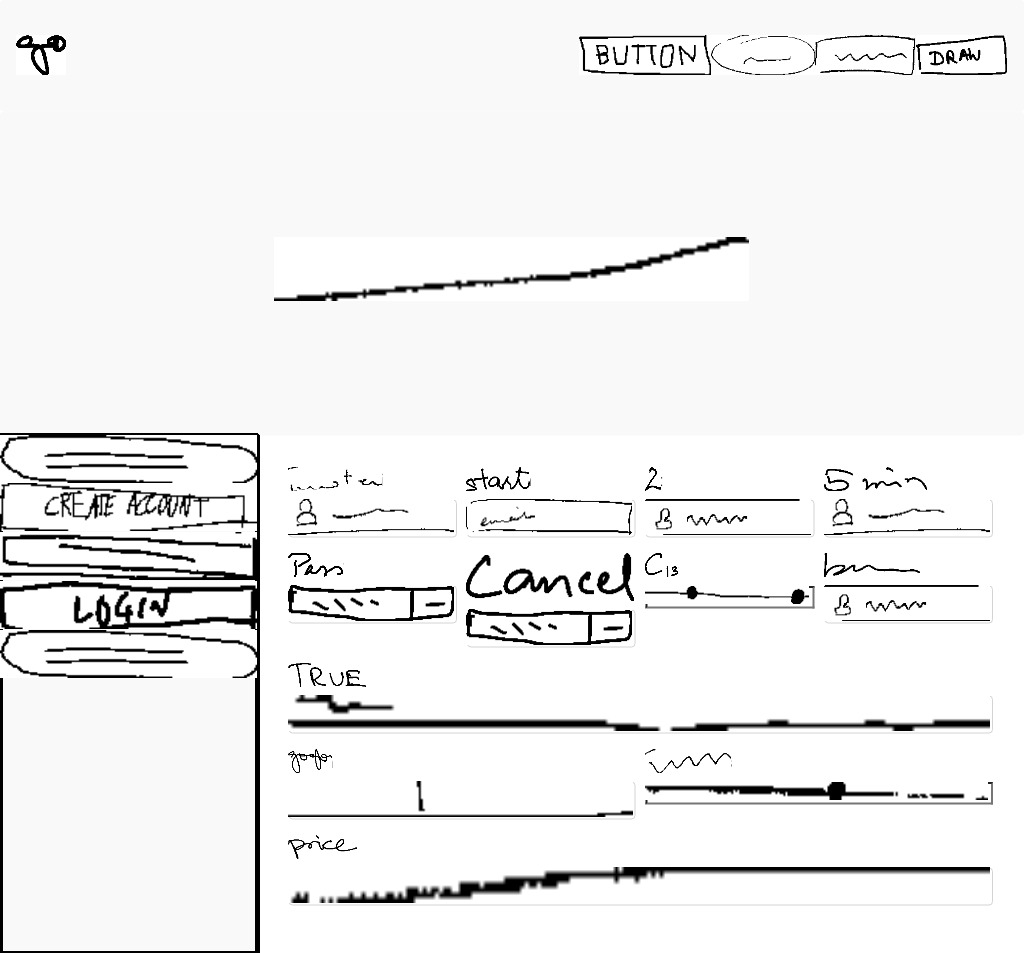 go
BUTTON DRAW
CREATE ACCOUNT
LOGIN
start 2 5 min
email
Pass Cancel C13
TRUE
price